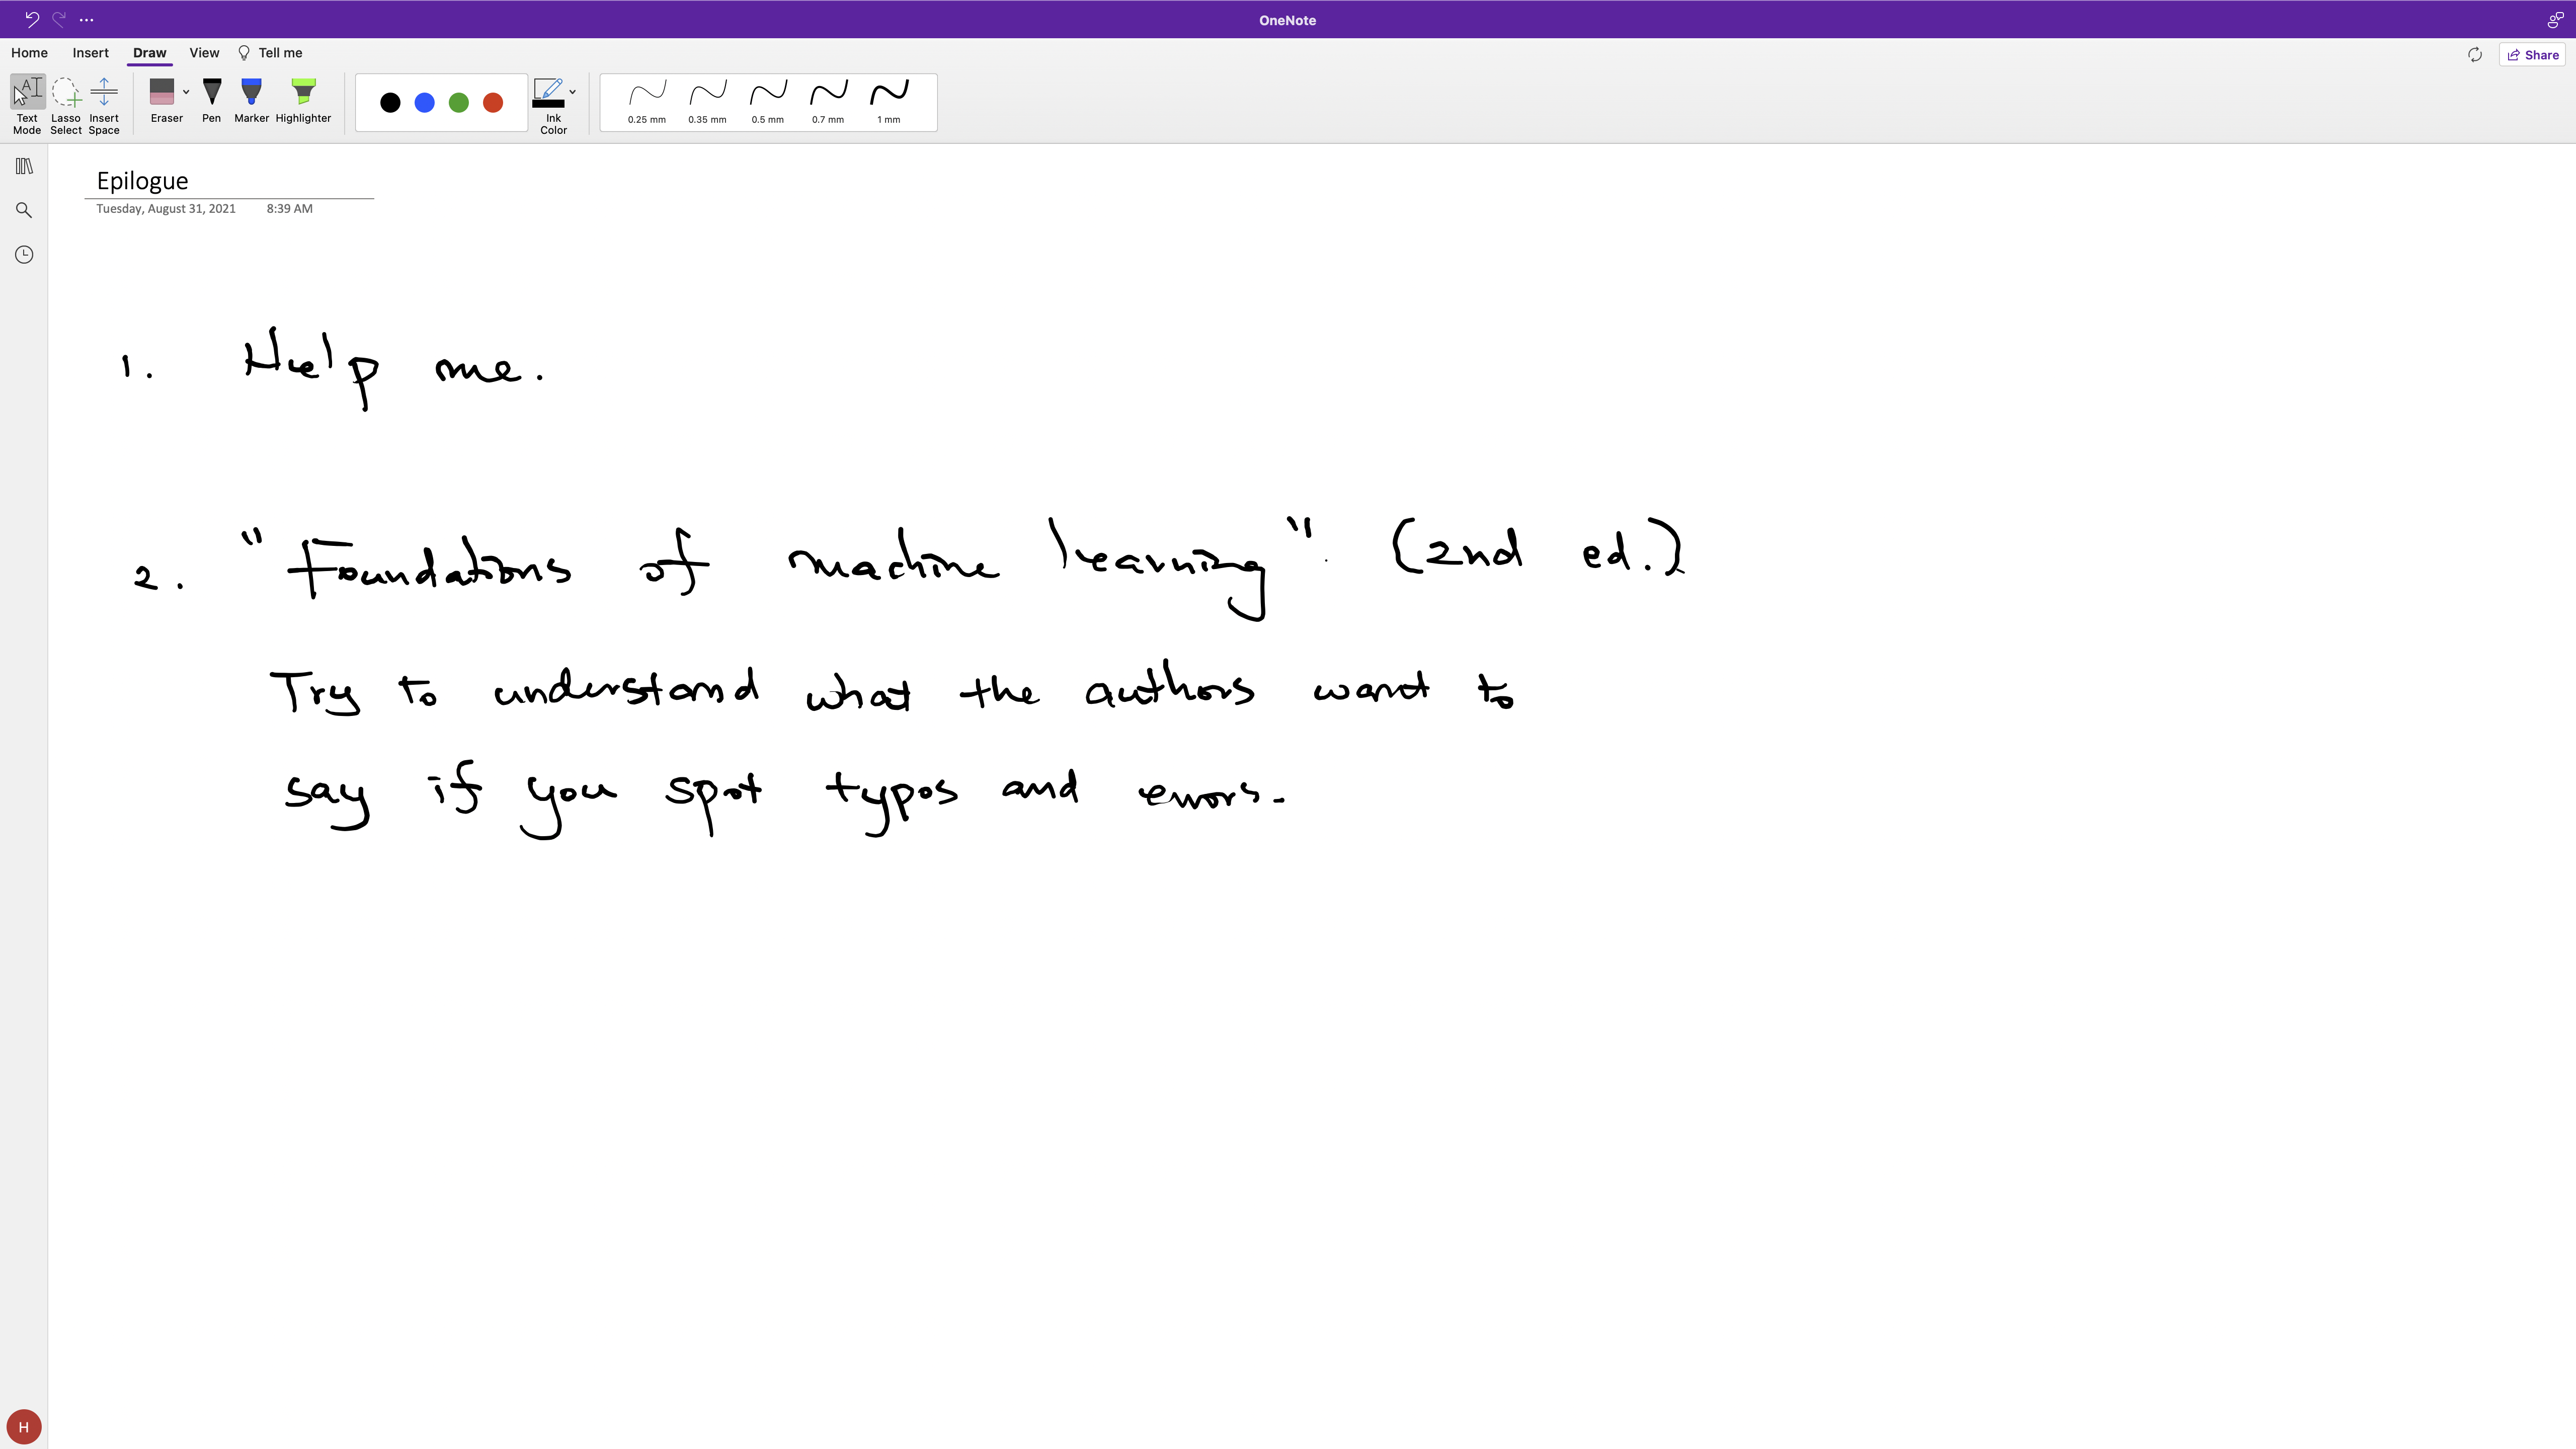 OneNote
Home Insert Draw View Tell me Share
Text Mode
Lasso Select
Insert Space
Eraser Pen Marker Highlighter
Ink Color
0.25 mm 0.35 mm 0.5 mm 0.7 mm 1 mm
Epilogue
Tuesday, August 31, 2021 8:39 AM
1. Help me.
2. "Foundations of machine learning". (2nd ed.)
Try to understand what the authors want to
say if you spot typos and errors.
H